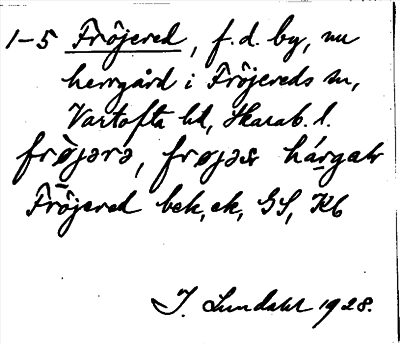 1-5 Fröjered, f.d. by, nu
herrgård i Fröjereds sn,
Vartofta hd, Skarab. l.
frøjərə, frøjəs hárgaḷ
Fröjered bek, ek, GS, Kb
J. Lundahl 1928.